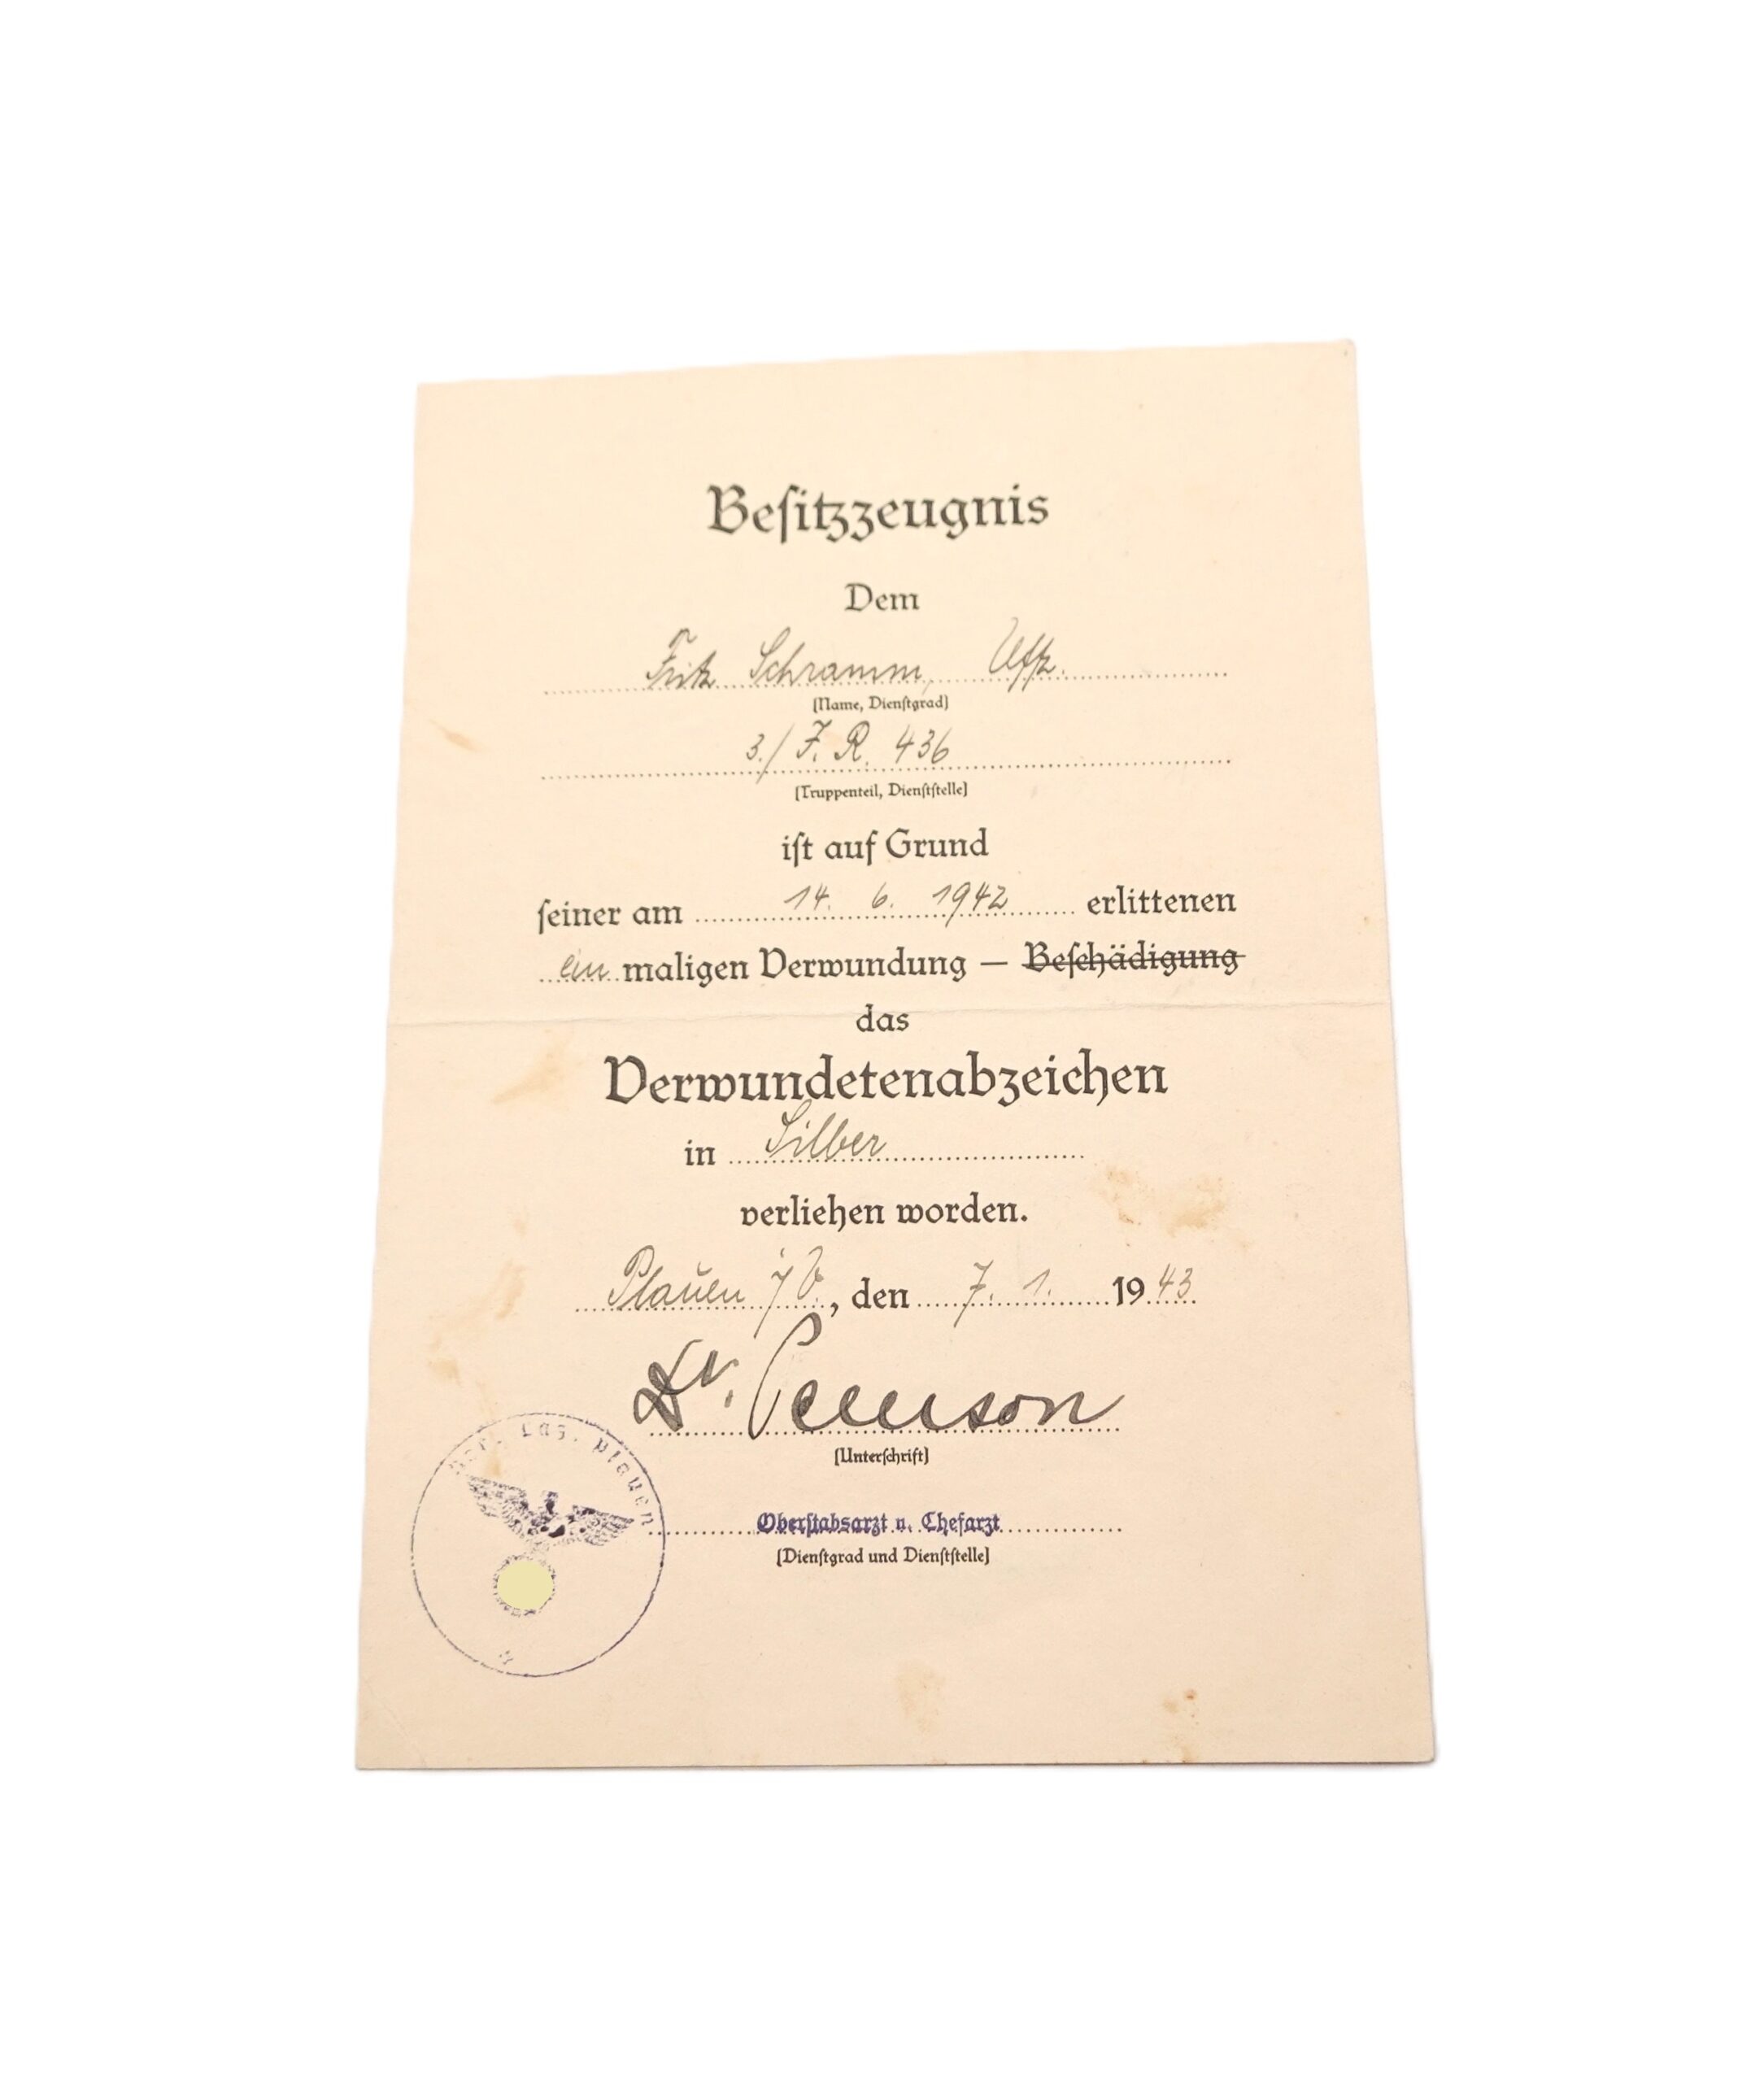 Besitzzeugnis
Dem
Fritz Schramm, Uffz.
(Name, Dienstgrad)
3./ I. R. 436
(Truppenteil, Dienststelle)
ist auf Grund
seiner am 14. 6. 1942 erlittenen
ein maligen Verwundung – Beschädigung
das
Verwundetenabzeichen
in Silber
verliehen worden.
Plauen i/V., den 7. 1. 1943
Dr.
(Unterschrift)
Oberstabsarzt u. Chefarzt
(Dienstgrad und Dienststelle)
Laz. Plauen